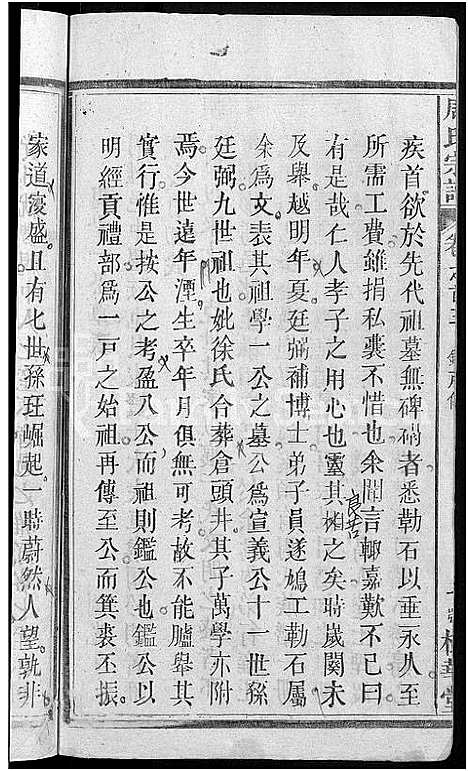 周氏宗譜
卷之首三
桂華堂
疾首欲於先代祖墓無碑碣者悉勒石以垂永久至
所需工費雖捐私囊不惜也余聞言輒嘉歎不已曰
是哉仁人孝子之用心也靈其相之矣時歲闋未
良苦
及舉越明年夏廷弼補博士弟子員遂鳩工勒石屬
余為文表其祖學一公之墓公為宣義公十一世孫
廷弼九世祖也妣徐氏合葬倉頭井其子萬學亦附
焉今世遠年湮生卒年月俱無可考故不能臚舉其
實行惟是按公之考盈八公而祖則鑑公也鑑公以
明經貢禮部為一戸之始祖再傳至公而箕裘丕振
家道寖盛且有七世孫珏崛起一時蔚然人望孰非